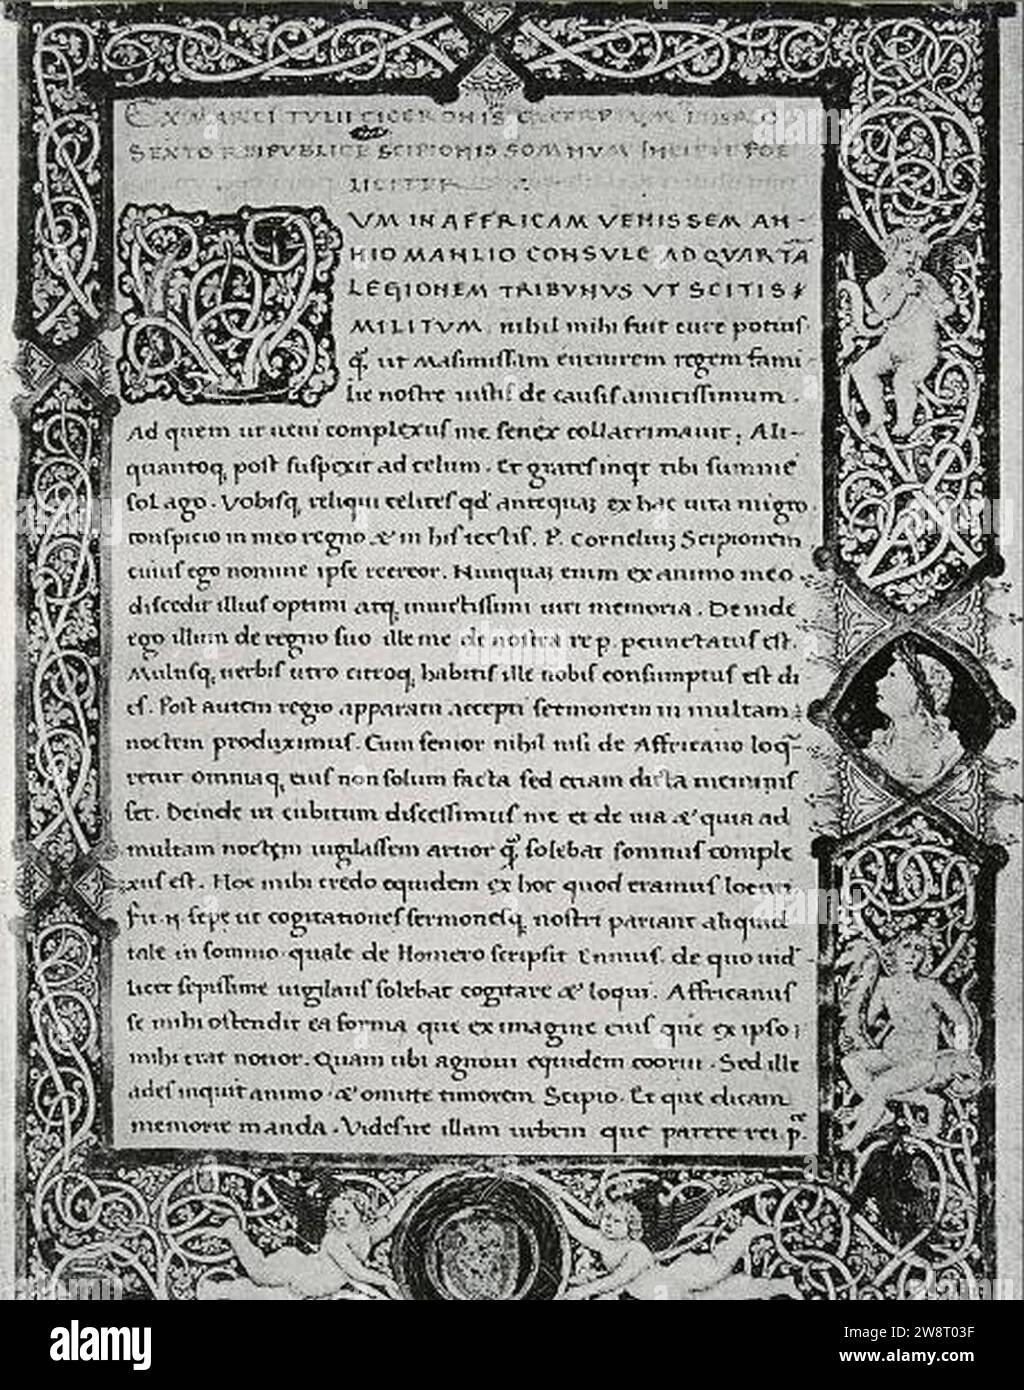 EX MARCI TVLII CICERONIS EXCERPTVM
SEXTO REIPVBLICE SCIPIONIS SOMNVM INCIPIT FOE
LICITER
VM IN AFFRICAM VENISSEM AN-
NIO MANLIO CONSVLE AD QVARTĀ
LEGIONEM TRIBVNUS VT SCITIS
MILITVM nihil mihi fuit cure potius
q̃ ut Masinissam cuenirem regem fami-
lie nostre iustis de causis amicissimum.
Ad quem ut ueni complexus me senex collacrimauit; Ali-
quantoq, post suspexit ad celum. Et grates inqt tibi summe
sol ago. Vobisq, reliqui celites qd̃ anteqȝ ex hac uita migro
conspicio in meo regno & in his tectis. P. Cornelium Scipionem
cuius ego nomine ipse recreor. Nunquaȝ enim ex animo meo
discedit illius optimi atq, inuictissimi uiri memoria. Deinde
ego illum de regno suo ille me de nostra re p. percunctatus est.
Multisq, uerbis ultro citroq, habitis ille nobis consumptus est di
es. Post autem regio apparatu accepti sermonem in multam
noctem produximus. Cum senior nihil nisi de Affricano loq̃-
retur omniaq, eius non solum facta sed etiam dicta meminis
set. Deinde ut cubitum discessimus me et de uia & quia ad
multam noctem uigilassem artior q̃ solebat somnus comple
xus est. Hoc mihi credo equidem ex hoc quod eramus locuti
Fit .n. sepe ut cogitationes sermonesq, nostri pariant aliquid
tale in somno quale de Homero scripsit Ennius. de quo uid̃-
licet sepissime uigilans solebat cogitare & loqui. Affricanus
se mihi ostendit ea forma que ex imagine eius que ex ipso
mihi erat notior. Quam ubi agnoui equidem coorui. Sed ille
ades inquit animo & omitte timorem Scipio. Et que dicam
memorie manda. Videsne illam urbem que parere rei p.
alamy
Image ID: 2W8T03F
www.alamy.com